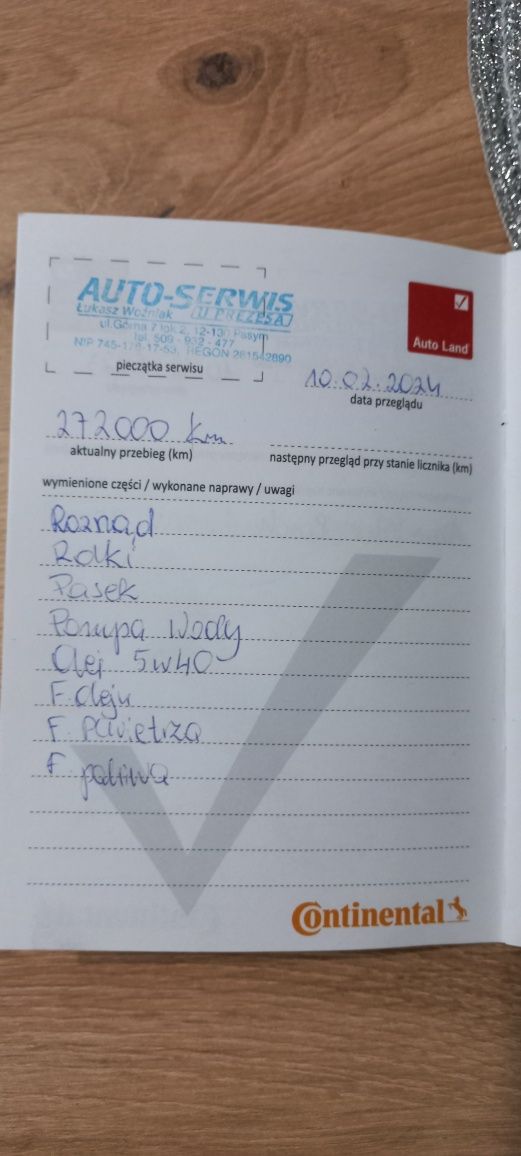 AUTO-SERWIS
Łukasz Woźniak U PREZESA
ul.Górna 7 lok 2, 12-130 Pasym
tel. 509 - 932 - 477
pieczątka serwisu
Auto Land
10.02.2024
data przeglądu
272000 km
aktualny przebieg (km)
następny przegląd przy stanie licznika (km)
wymienione części / wykonane naprawy / uwagi
Rozrząd
Rolki
Pasek
Pompa Wody
Olej 5w40
F. oleju
F. powietrza
F paliwa
Continental